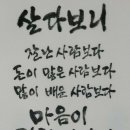 살다보니
잘난 사람보다
돈이 많은 사람보다
많이 배운 사람보다
마음이